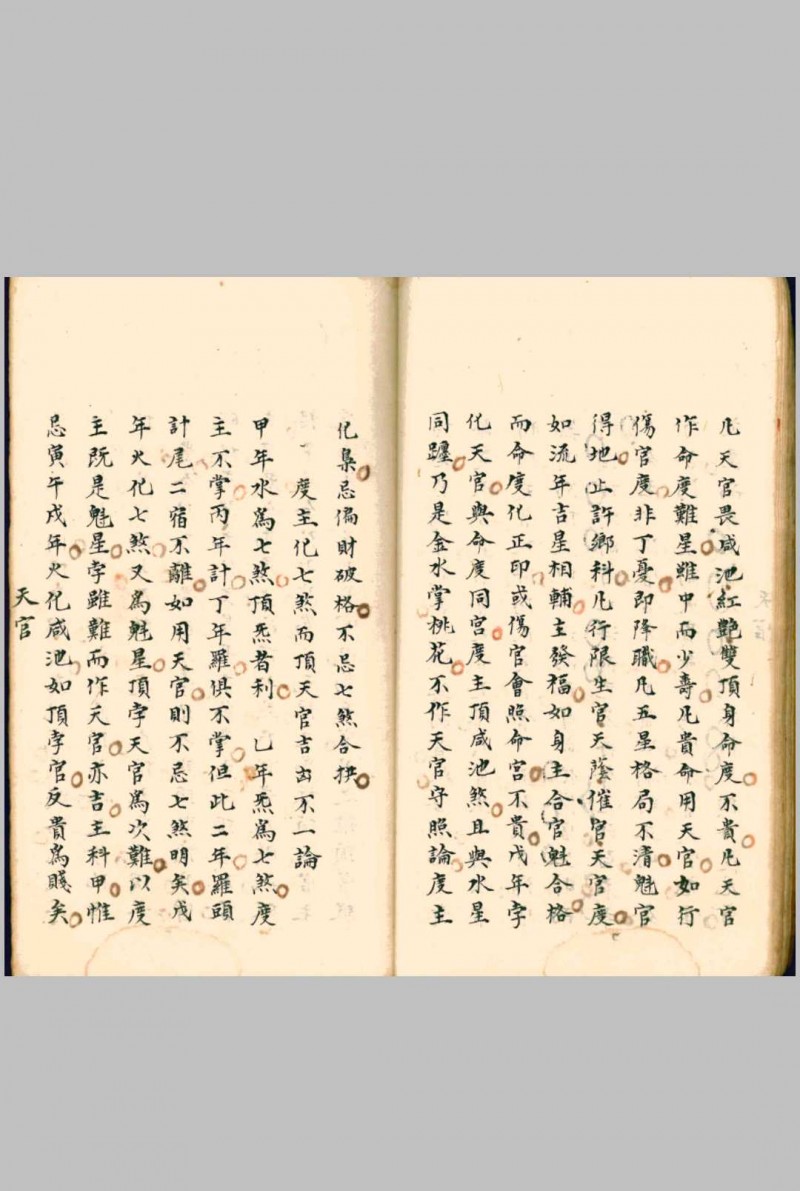 凡天官畏咸池紅艷雙頂身命度不貴凡天官
作命度難星雖中而少壽凡貴命用天官如行
傷官度非丁憂即降職凡五星格局不清魁官
得地止許鄉科凡行限生官天蔭催官天官度
如流年吉星相輔主發福如身主合官魁合格
而命度化正印或傷官會照命宮不貴戊年孛
化天官與命度同宮度主頂咸池煞且與水星
同躔乃是金水掌桃花不作天官守照論度主
化梟忌偏財破格不忌七煞合拱
度主化七煞而頂天官吉凶不一論
甲年水為七煞頂炁者利 乙年炁為七煞度
主不掌丙年計丁年羅俱不掌但此二年羅頭
計尾二宿不離如用天官則不忌七煞明矣戊
年火化七煞又為魁星頂孛天官為次難以度
主既是魁星孛雖難而作天官亦吉主科甲惟
忌寅午戌年火化咸池如頂孛官反貴為賤矣
天官